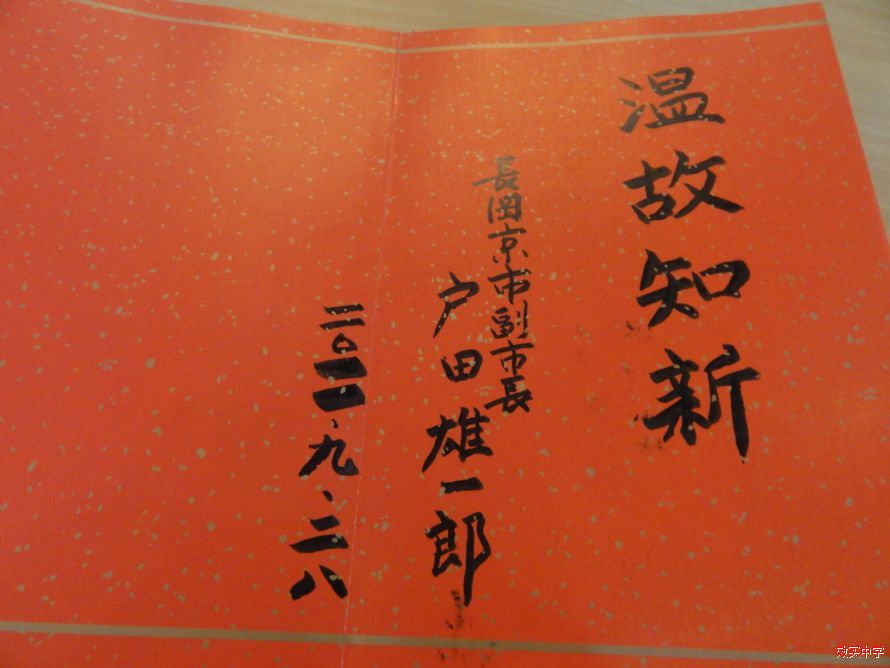 温故知新
長岡京市副市長
戸田雄一郎
二〇一一、九、二八
效实中学